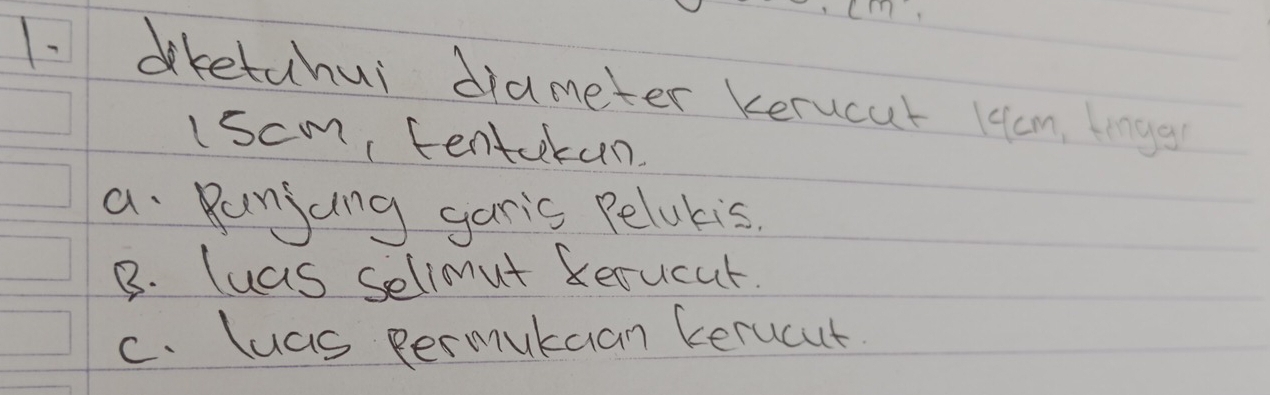 cm.
1. diketahui diameter kerucut 14cm, tinggi
15cm, tentukan.
a. Panjang garis Pelukis.
B. luas selimut kerucut.
C. luas Permukaan kerucut.